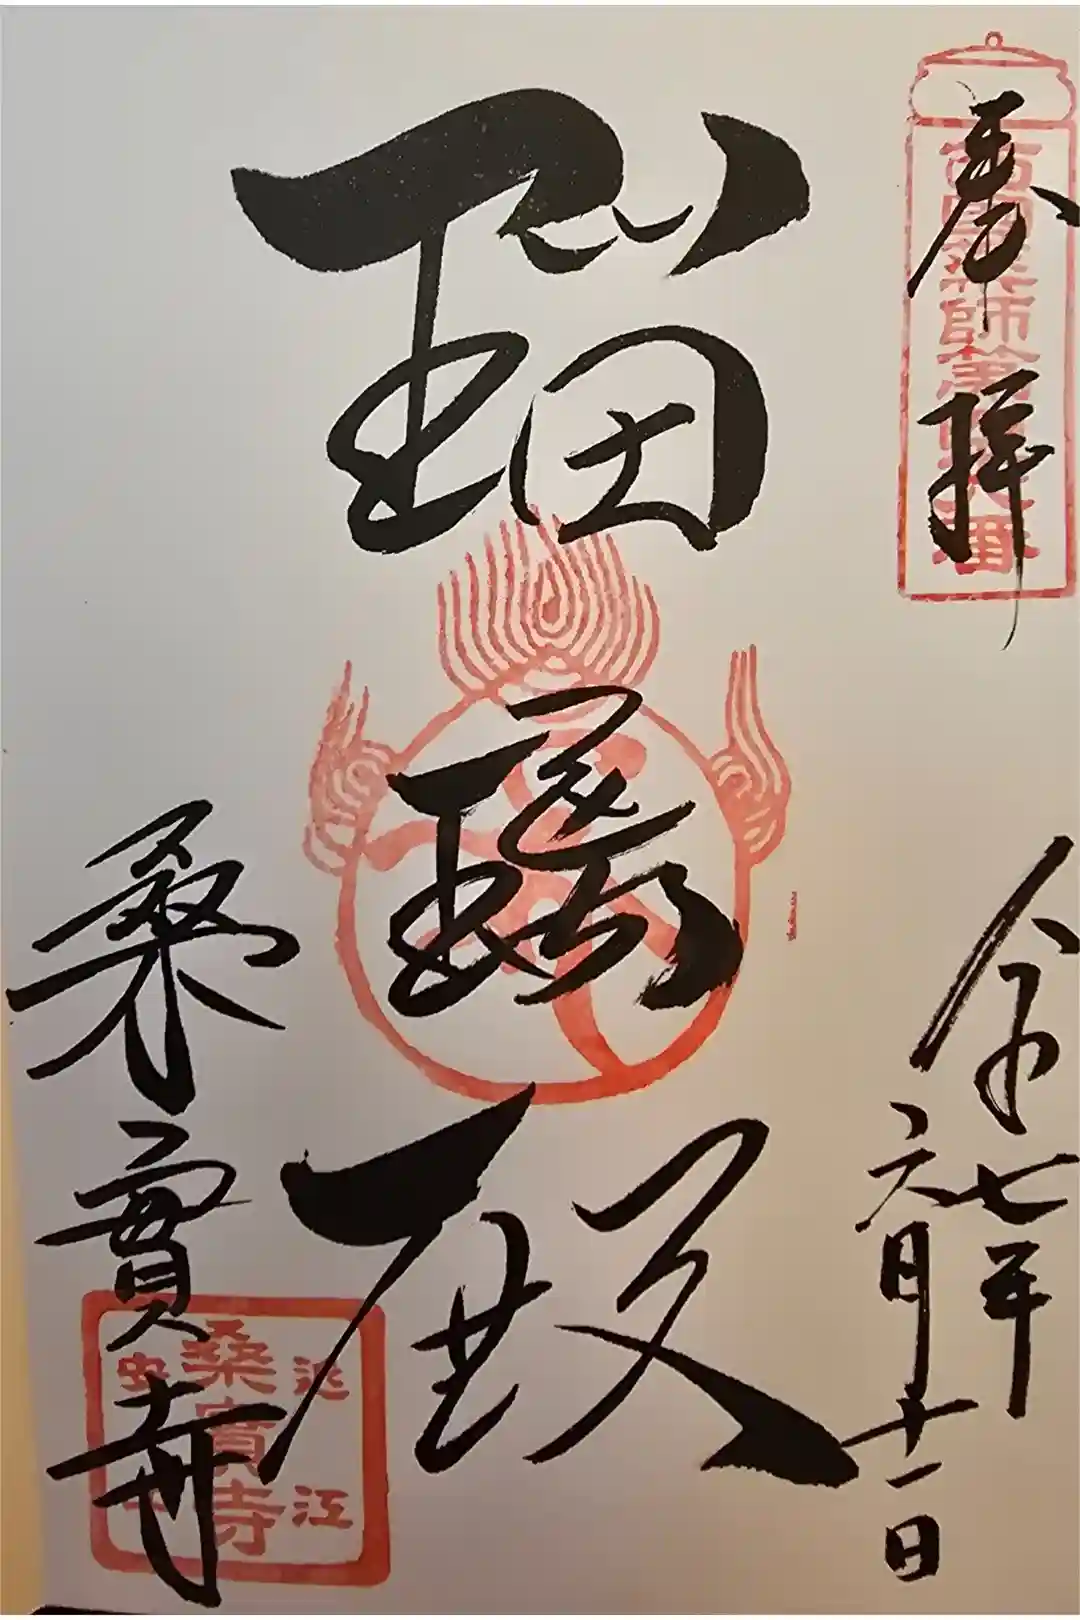 奉拝
西國薬師第四十六番
令和七年
六月十一日
瑠璃殿
桑實寺
近江
桑實寺
安土